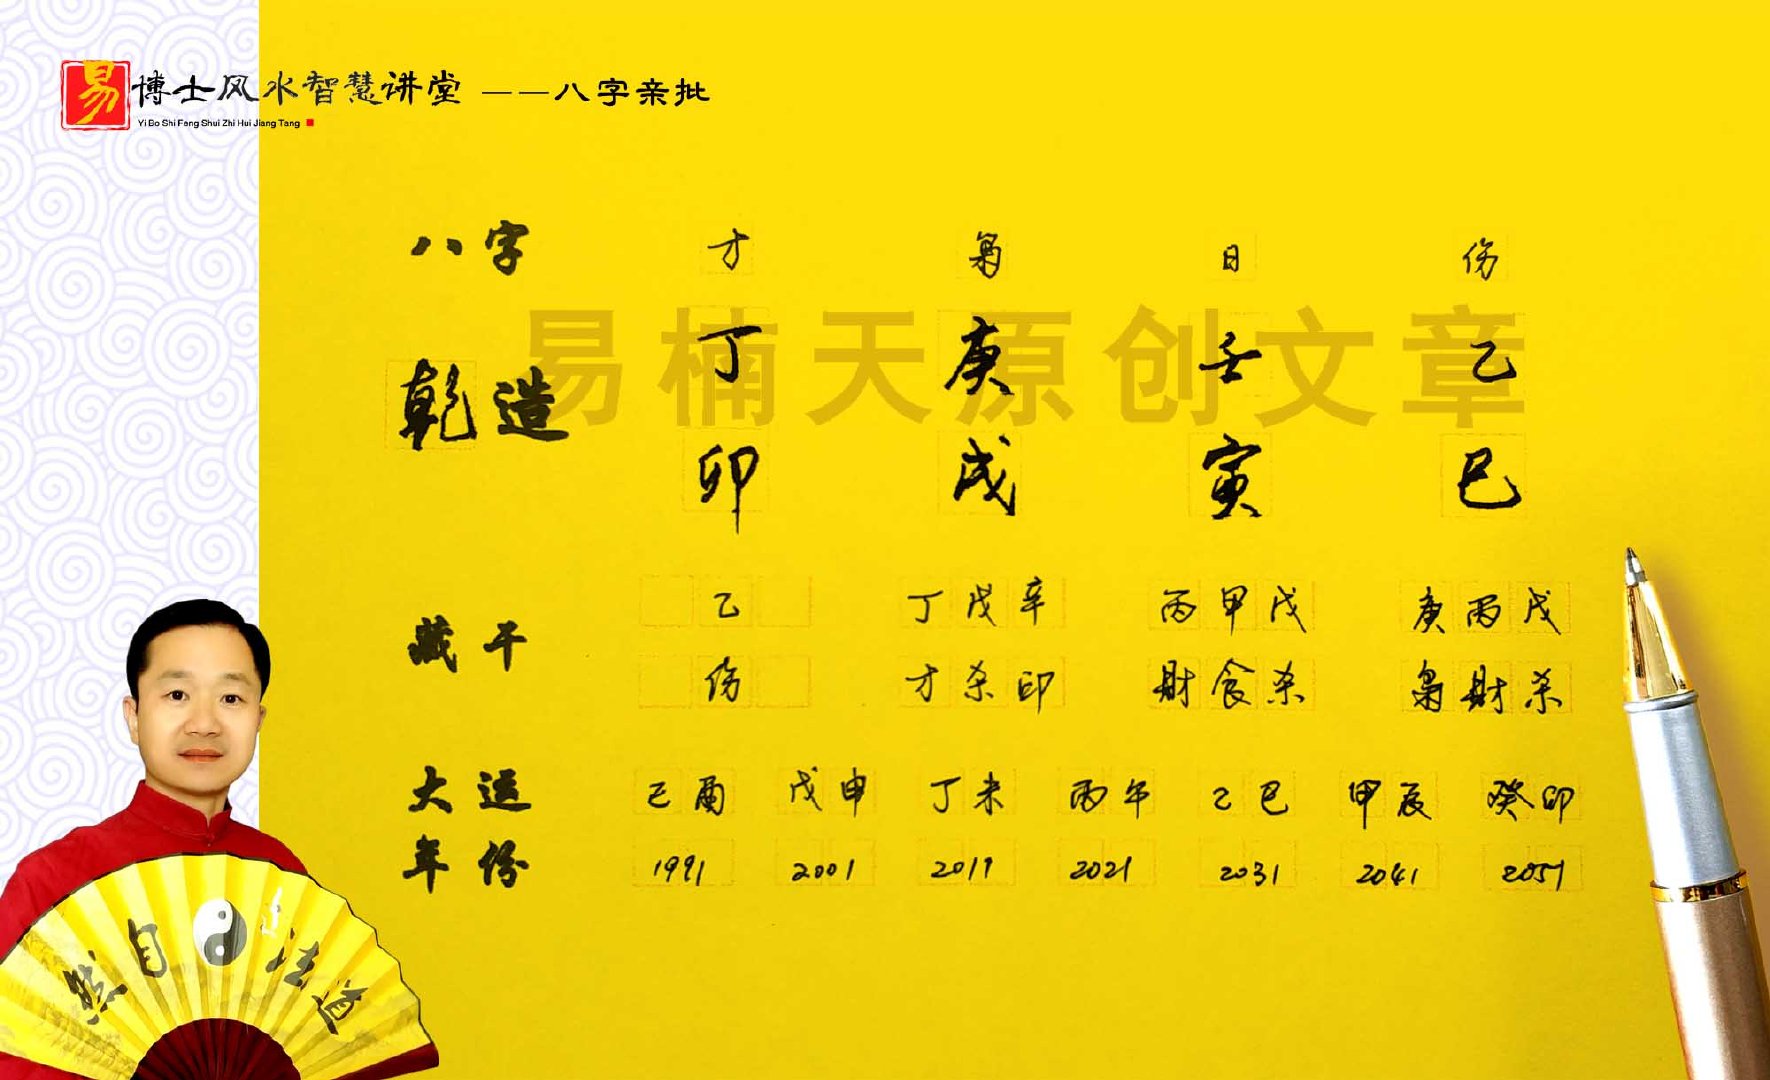 易博士风水智慧讲堂 ——八字亲批
Yi Bo Shi Feng Shui Zhi Hui Jiang Tang
八字 才 枭 日 伤
易楠天原创文章
乾造 丁 庚 壬 乙
卯 戌 寅 巳
藏干 乙 丁戊辛 丙甲戊 庚丙戊
伤 才杀印 财食杀 枭财杀
大运 己酉 戊申 丁未 丙午 乙巳 甲辰 癸卯
年份 1991 2001 2011 2021 2031 2041 2051
道法自然